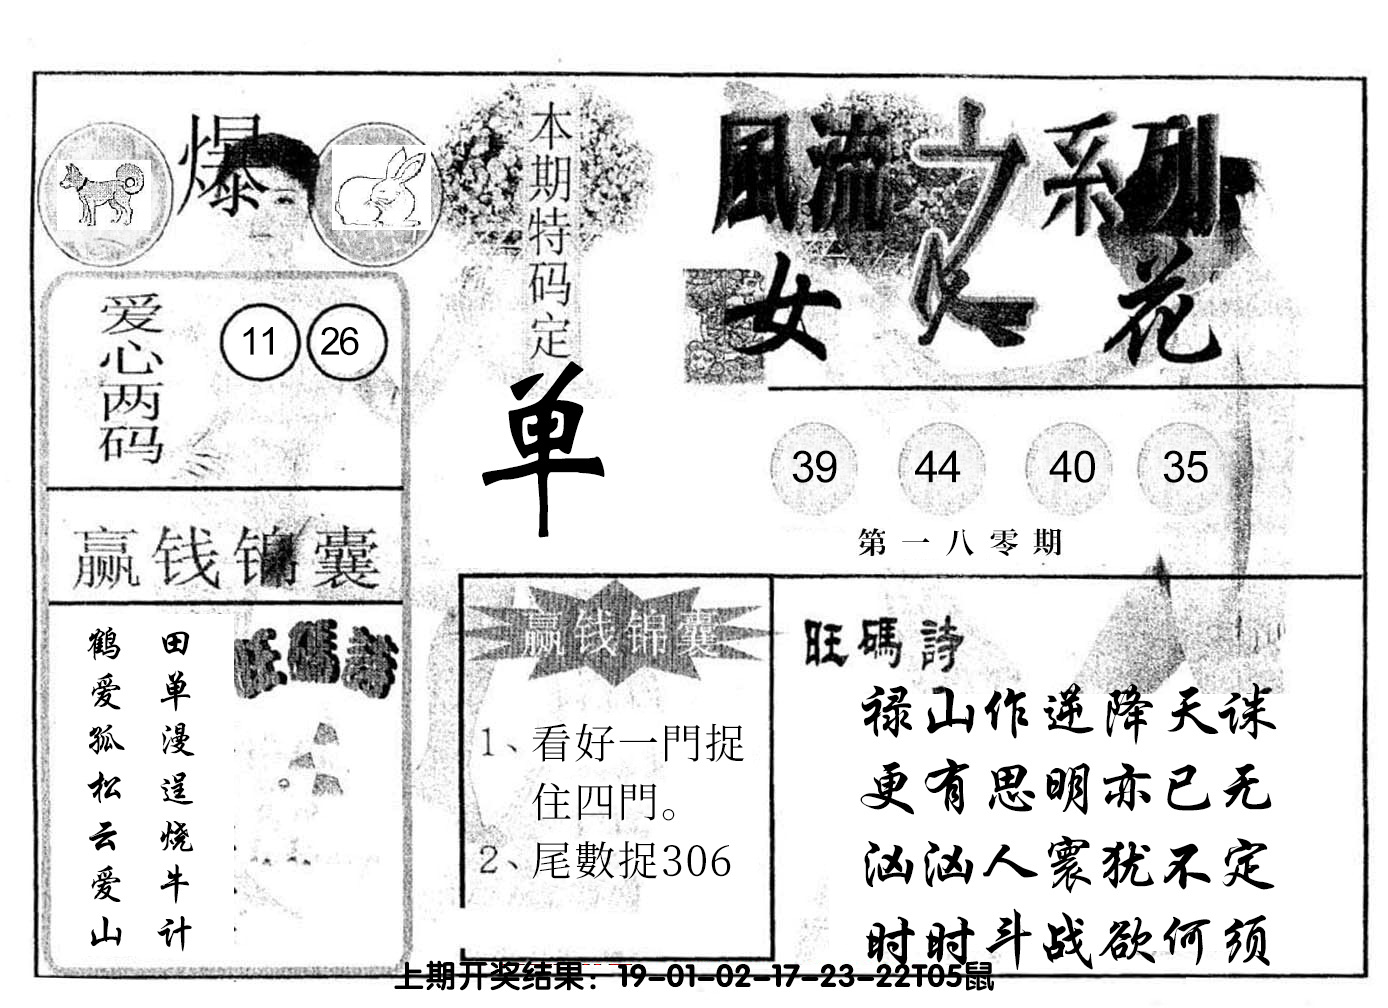 爆
本期特码定
单
風流之系列
女人花
爱心两码
11 26
赢钱锦囊
田单漫逞烧牛计
鹤爱孤松云爱山
旺碼詩
39 44 40 35
第一八零期
赢钱锦囊
1、看好一門捉
住四門。
2、尾數捉306
旺碼詩
禄山作逆降天诛
更有思明亦已无
汹汹人寰犹不定
时时斗战欲何须
上期开奖结果：19-01-02-17-23-22T05鼠